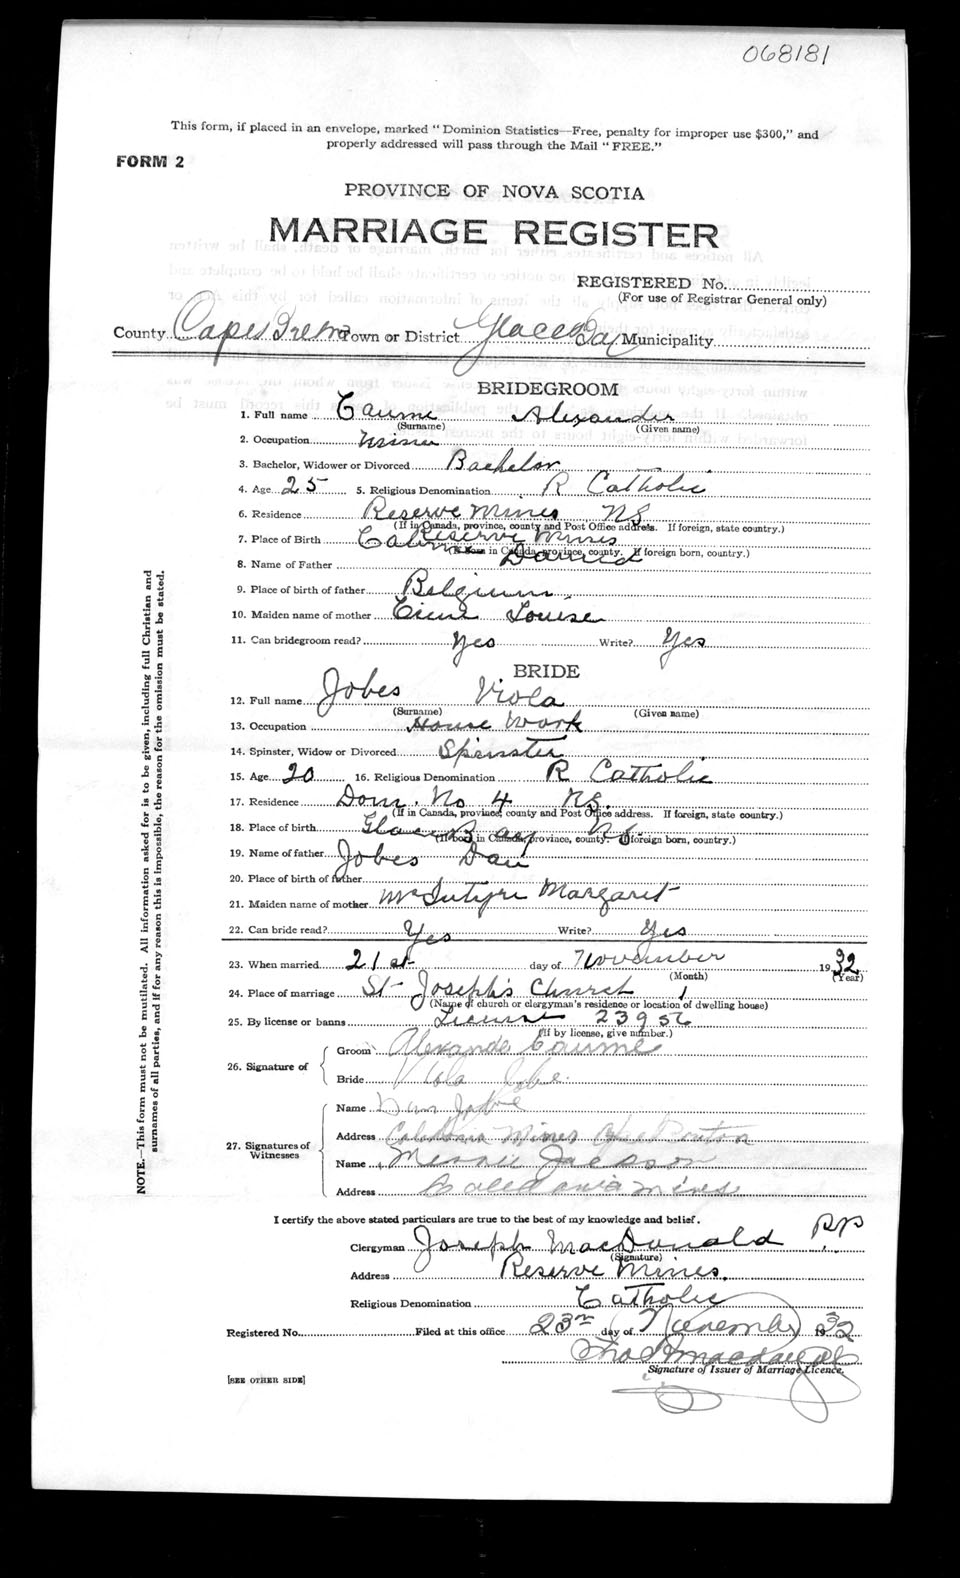 068181
This form, if placed in an envelope, marked "Dominion Statistics—Free, penalty for improper use $300," and
properly addressed will pass through the Mail "FREE."
FORM 2
PROVINCE OF NOVA SCOTIA
MARRIAGE REGISTER
REGISTERED No.
(For use of Registrar General only)
County Cape Breton Town or District Glace Bay Municipality
BRIDEGROOM
1. Full name Caume Alexander
(Surname) (Given name)
2. Occupation Miner
3. Bachelor, Widower or Divorced Bachelor
4. Age 25 5. Religious Denomination R Catholic
6. Residence Reserve Mines NS
(If in Canada, province, county and Post Office address. If foreign, state country.)
7. Place of Birth Reserve Mines
(If born in Canada, province, county. If foreign born, country.)
8. Name of Father Caume David
9. Place of birth of father Belgium
10. Maiden name of mother Louise
11. Can bridegroom read? Yes Write? Yes
BRIDE
12. Full name Jobes Viola
(Surname) (Given name)
13. Occupation House Work
14. Spinster, Widow or Divorced Spinster
15. Age 20 16. Religious Denomination R Catholic
17. Residence Dom. No 4 NS.
(If in Canada, province, county and Post Office address. If foreign, state country.)
18. Place of birth Glace Bay NS
(If born in Canada, province, county. If foreign born, country.)
19. Name of father Jobes Dan
20. Place of birth of father
21. Maiden name of mother McIntyre Margaret
22. Can bride read? Yes Write? Yes
23. When married 21st day of November 1932
(Month) (Year)
24. Place of marriage St Joseph's Church
(Name of church or clergyman's residence or location of dwelling house)
25. By license or banns License 23956
(If by license, give number.)
26. Signature of Groom Alexander Caume
Bride Viola Jobe
27. Signatures of Witnesses Name Dan Jobe
Address Caledonia Mines Cape Breton
Name Minnie Jackson
Address Caledonia Mines
I certify the above stated particulars are true to the best of my knowledge and belief.
Clergyman Joseph MacDonald P.P.
(Signature)
Address Reserve Mines.
Religious Denomination Catholic
Registered No. Filed at this office 23rd day of November 1932
Signature of Issuer of Marriage Licence.
[SEE OTHER SIDE]
NOTE.—This form must not be mutilated. All information asked for is to be given, including full Christian and
surnames of all parties, and if for any reason this is impossible, the reason for the omission must be stated.